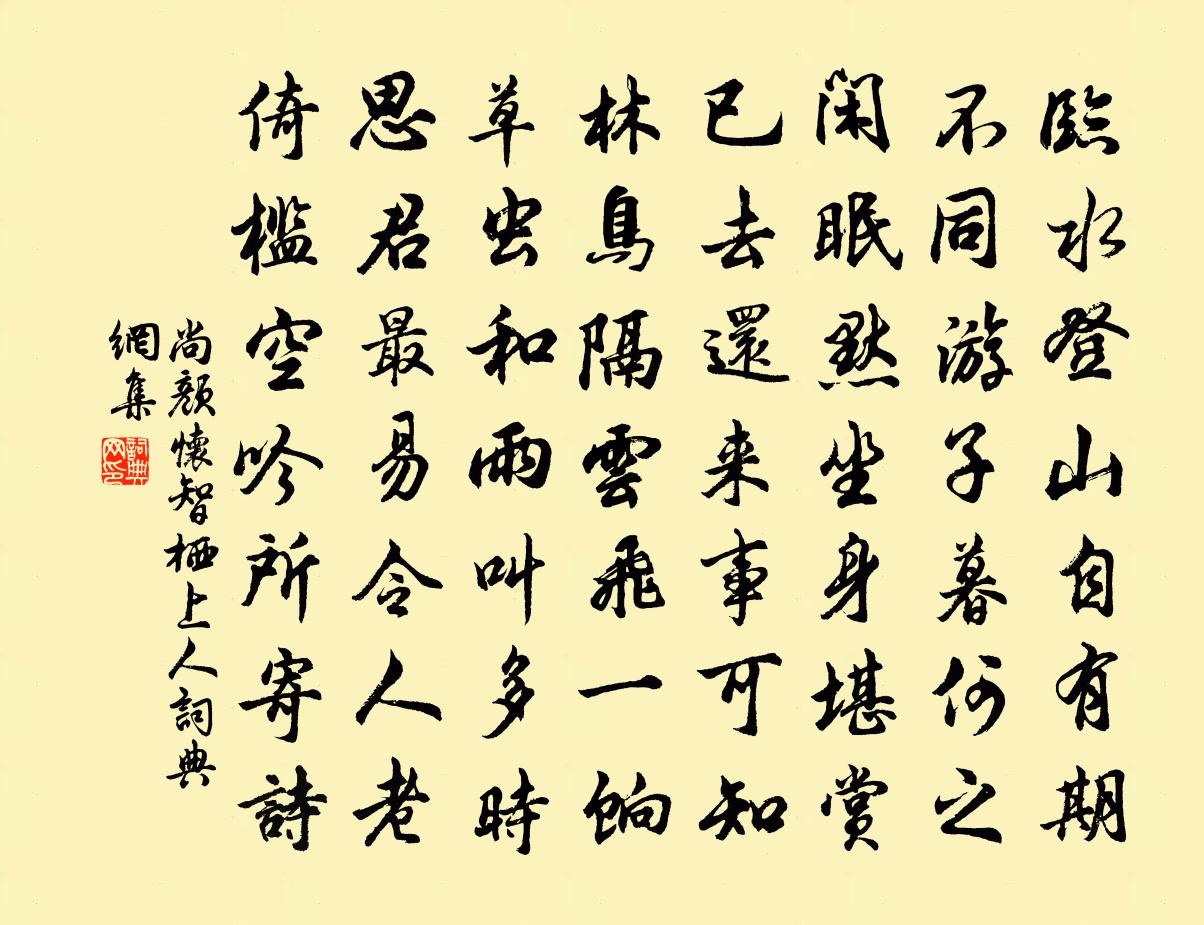 臨水登山自有期
不同游子暮何之
閑眠默坐身堪賞
已去還来事可知
林鳥隔雲飛一餉
草虫和雨叫多時
思君最易令人老
倚檻空吟所寄詩
尚顔懷智栖上人詞典
網集
詞典
网印